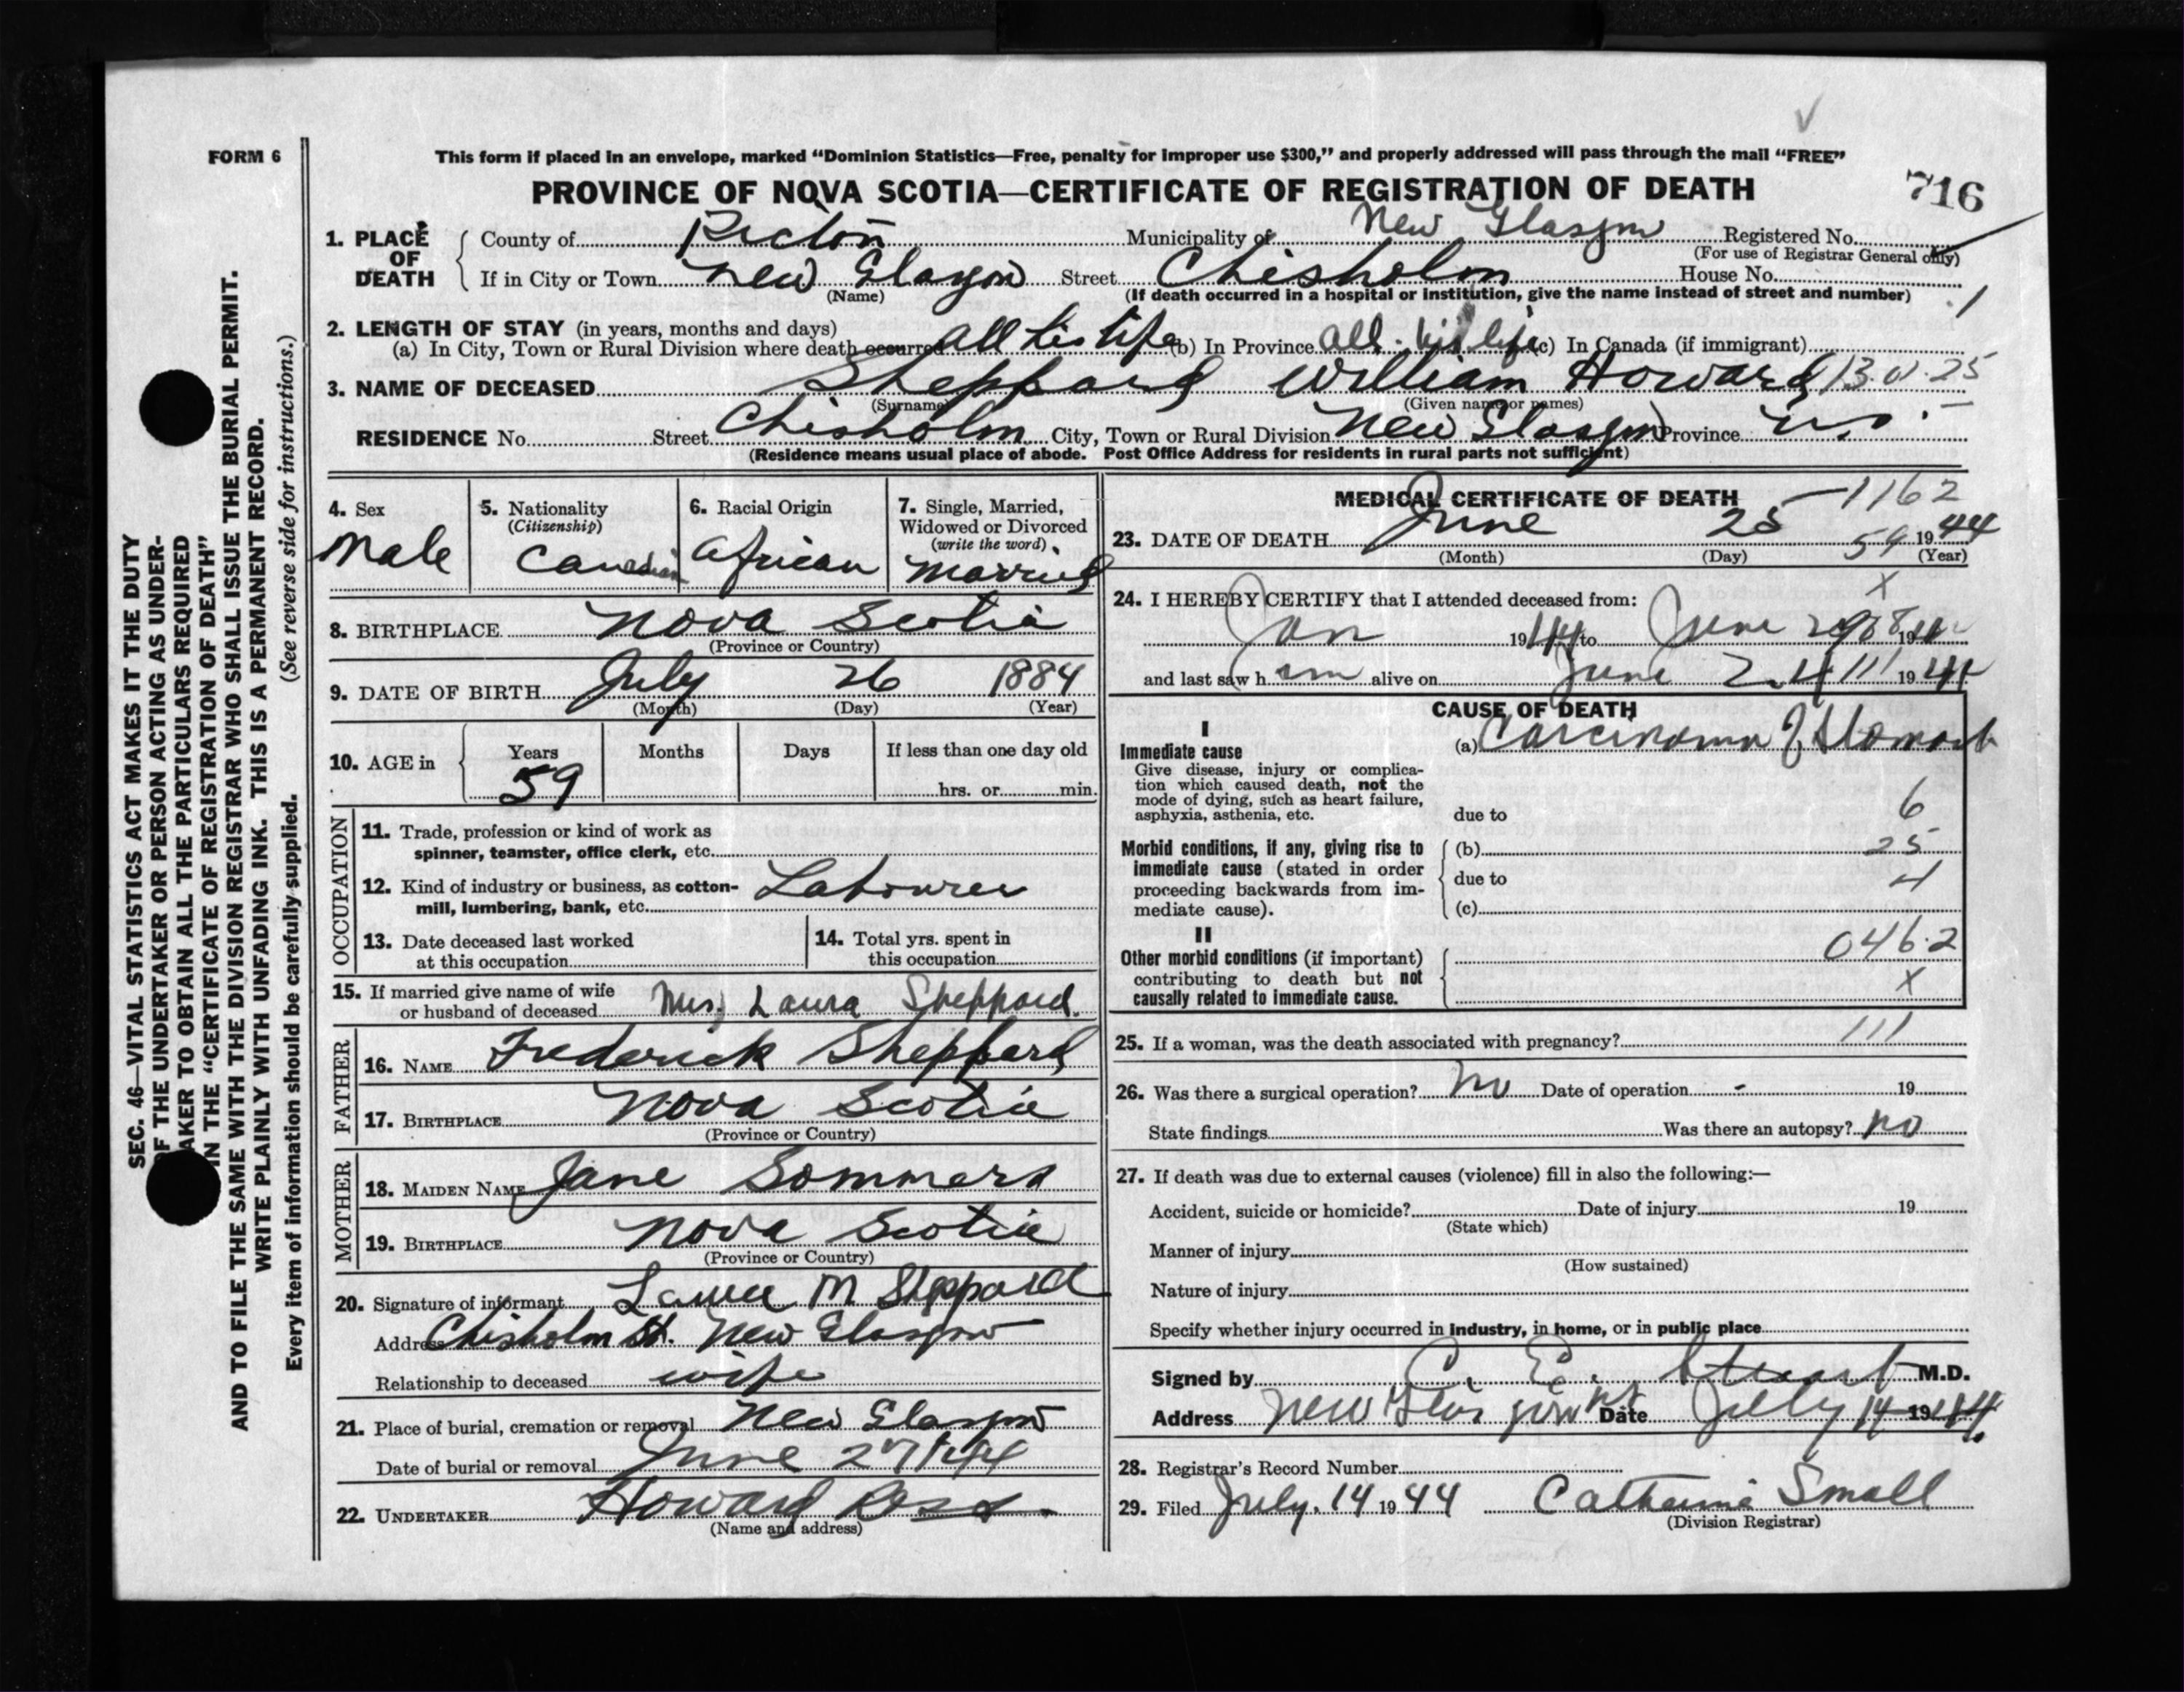 FORM 6
This form if placed in an envelope, marked “Dominion Statistics—Free, penalty for improper use $300,” and properly addressed will pass through the mail “FREE”
PROVINCE OF NOVA SCOTIA—CERTIFICATE OF REGISTRATION OF DEATH
716
1. PLACE OF DEATH
County of Pictou Municipality of New Glasgow Registered No.
(For use of Registrar General only)
If in City or Town New Glasgow Street Chisholm House No.
(Name) (If death occurred in a hospital or institution, give the name instead of street and number)
2. LENGTH OF STAY (in years, months and days)
(a) In City, Town or Rural Division where death occurred All his life (b) In Province All his life (c) In Canada (if immigrant)
3. NAME OF DECEASED Sheppard William Howard
(Surname) (Given name or names)
RESIDENCE No. Street Chisholm City, Town or Rural Division New Glasgow Province N.S.
(Residence means usual place of abode. Post Office Address for residents in rural parts not sufficient)
4. Sex
Male
5. Nationality
(Citizenship)
Canadian
6. Racial Origin
African
7. Single, Married, Widowed or Divorced
(write the word)
Married
8. BIRTHPLACE Nova Scotia
(Province or Country)
9. DATE OF BIRTH July 26 1884
(Month) (Day) (Year)
10. AGE in
Years Months Days If less than one day old
59 hrs. or min.
OCCUPATION
11. Trade, profession or kind of work as
spinner, teamster, office clerk, etc.
12. Kind of industry or business, as cotton- Labourer
mill, lumbering, bank, etc.
13. Date deceased last worked
at this occupation
14. Total yrs. spent in
this occupation
15. If married give name of wife
or husband of deceased Mrs. Laura Sheppard.
FATHER
16. NAME Frederick Sheppard
17. BIRTHPLACE Nova Scotia
(Province or Country)
MOTHER
18. MAIDEN NAME Jane Sommers
19. BIRTHPLACE Nova Scotia
(Province or Country)
20. Signature of informant M Sheppard
Address Chisholm St. New Glasgow
Relationship to deceased wife
21. Place of burial, cremation or removal New Glasgow
Date of burial or removal June 27 /44
22. UNDERTAKER Howard Ross
(Name and address)
MEDICAL CERTIFICATE OF DEATH
1162
23. DATE OF DEATH June 25 1944
(Month) (Day) (Year)
59
X
24. I HEREBY CERTIFY that I attended deceased from:
Jan 1944 to June 19
and last saw h im alive on June 24 1944
CAUSE OF DEATH
I
Immediate cause
Give disease, injury or complica-
tion which caused death, not the
mode of dying, such as heart failure,
asphyxia, asthenia, etc.
(a) Carcinoma of Stomach
due to 6
Morbid conditions, if any, giving rise to
immediate cause (stated in order
proceeding backwards from im-
mediate cause).
(b) 25
due to 4
(c)
II
Other morbid conditions (if important)
contributing to death but not
causally related to immediate cause.
046.2
X
25. If a woman, was the death associated with pregnancy? 111
26. Was there a surgical operation? No Date of operation - 19
State findings Was there an autopsy? No
27. If death was due to external causes (violence) fill in also the following:—
Accident, suicide or homicide? Date of injury 19
(State which)
Manner of injury
(How sustained)
Nature of injury
Specify whether injury occurred in industry, in home, or in public place
Signed by C. E. Stuart M.D.
Address New Glasgow NS Date July 14 1944
28. Registrar's Record Number
29. Filed July. 14 1944 Catherine Small
(Division Registrar)
SEC. 46—VITAL STATISTICS ACT MAKES IT THE DUTY
OF THE UNDERTAKER OR PERSON ACTING AS UNDER-
TAKER TO OBTAIN ALL THE PARTICULARS REQUIRED
IN THE “CERTIFICATE OF REGISTRATION OF DEATH”
AND TO FILE THE SAME WITH THE DIVISION REGISTRAR WHO SHALL ISSUE THE BURIAL PERMIT.
WRITE PLAINLY WITH UNFADING INK. THIS IS A PERMANENT RECORD.
Every item of information should be carefully supplied. (See reverse side for instructions.)